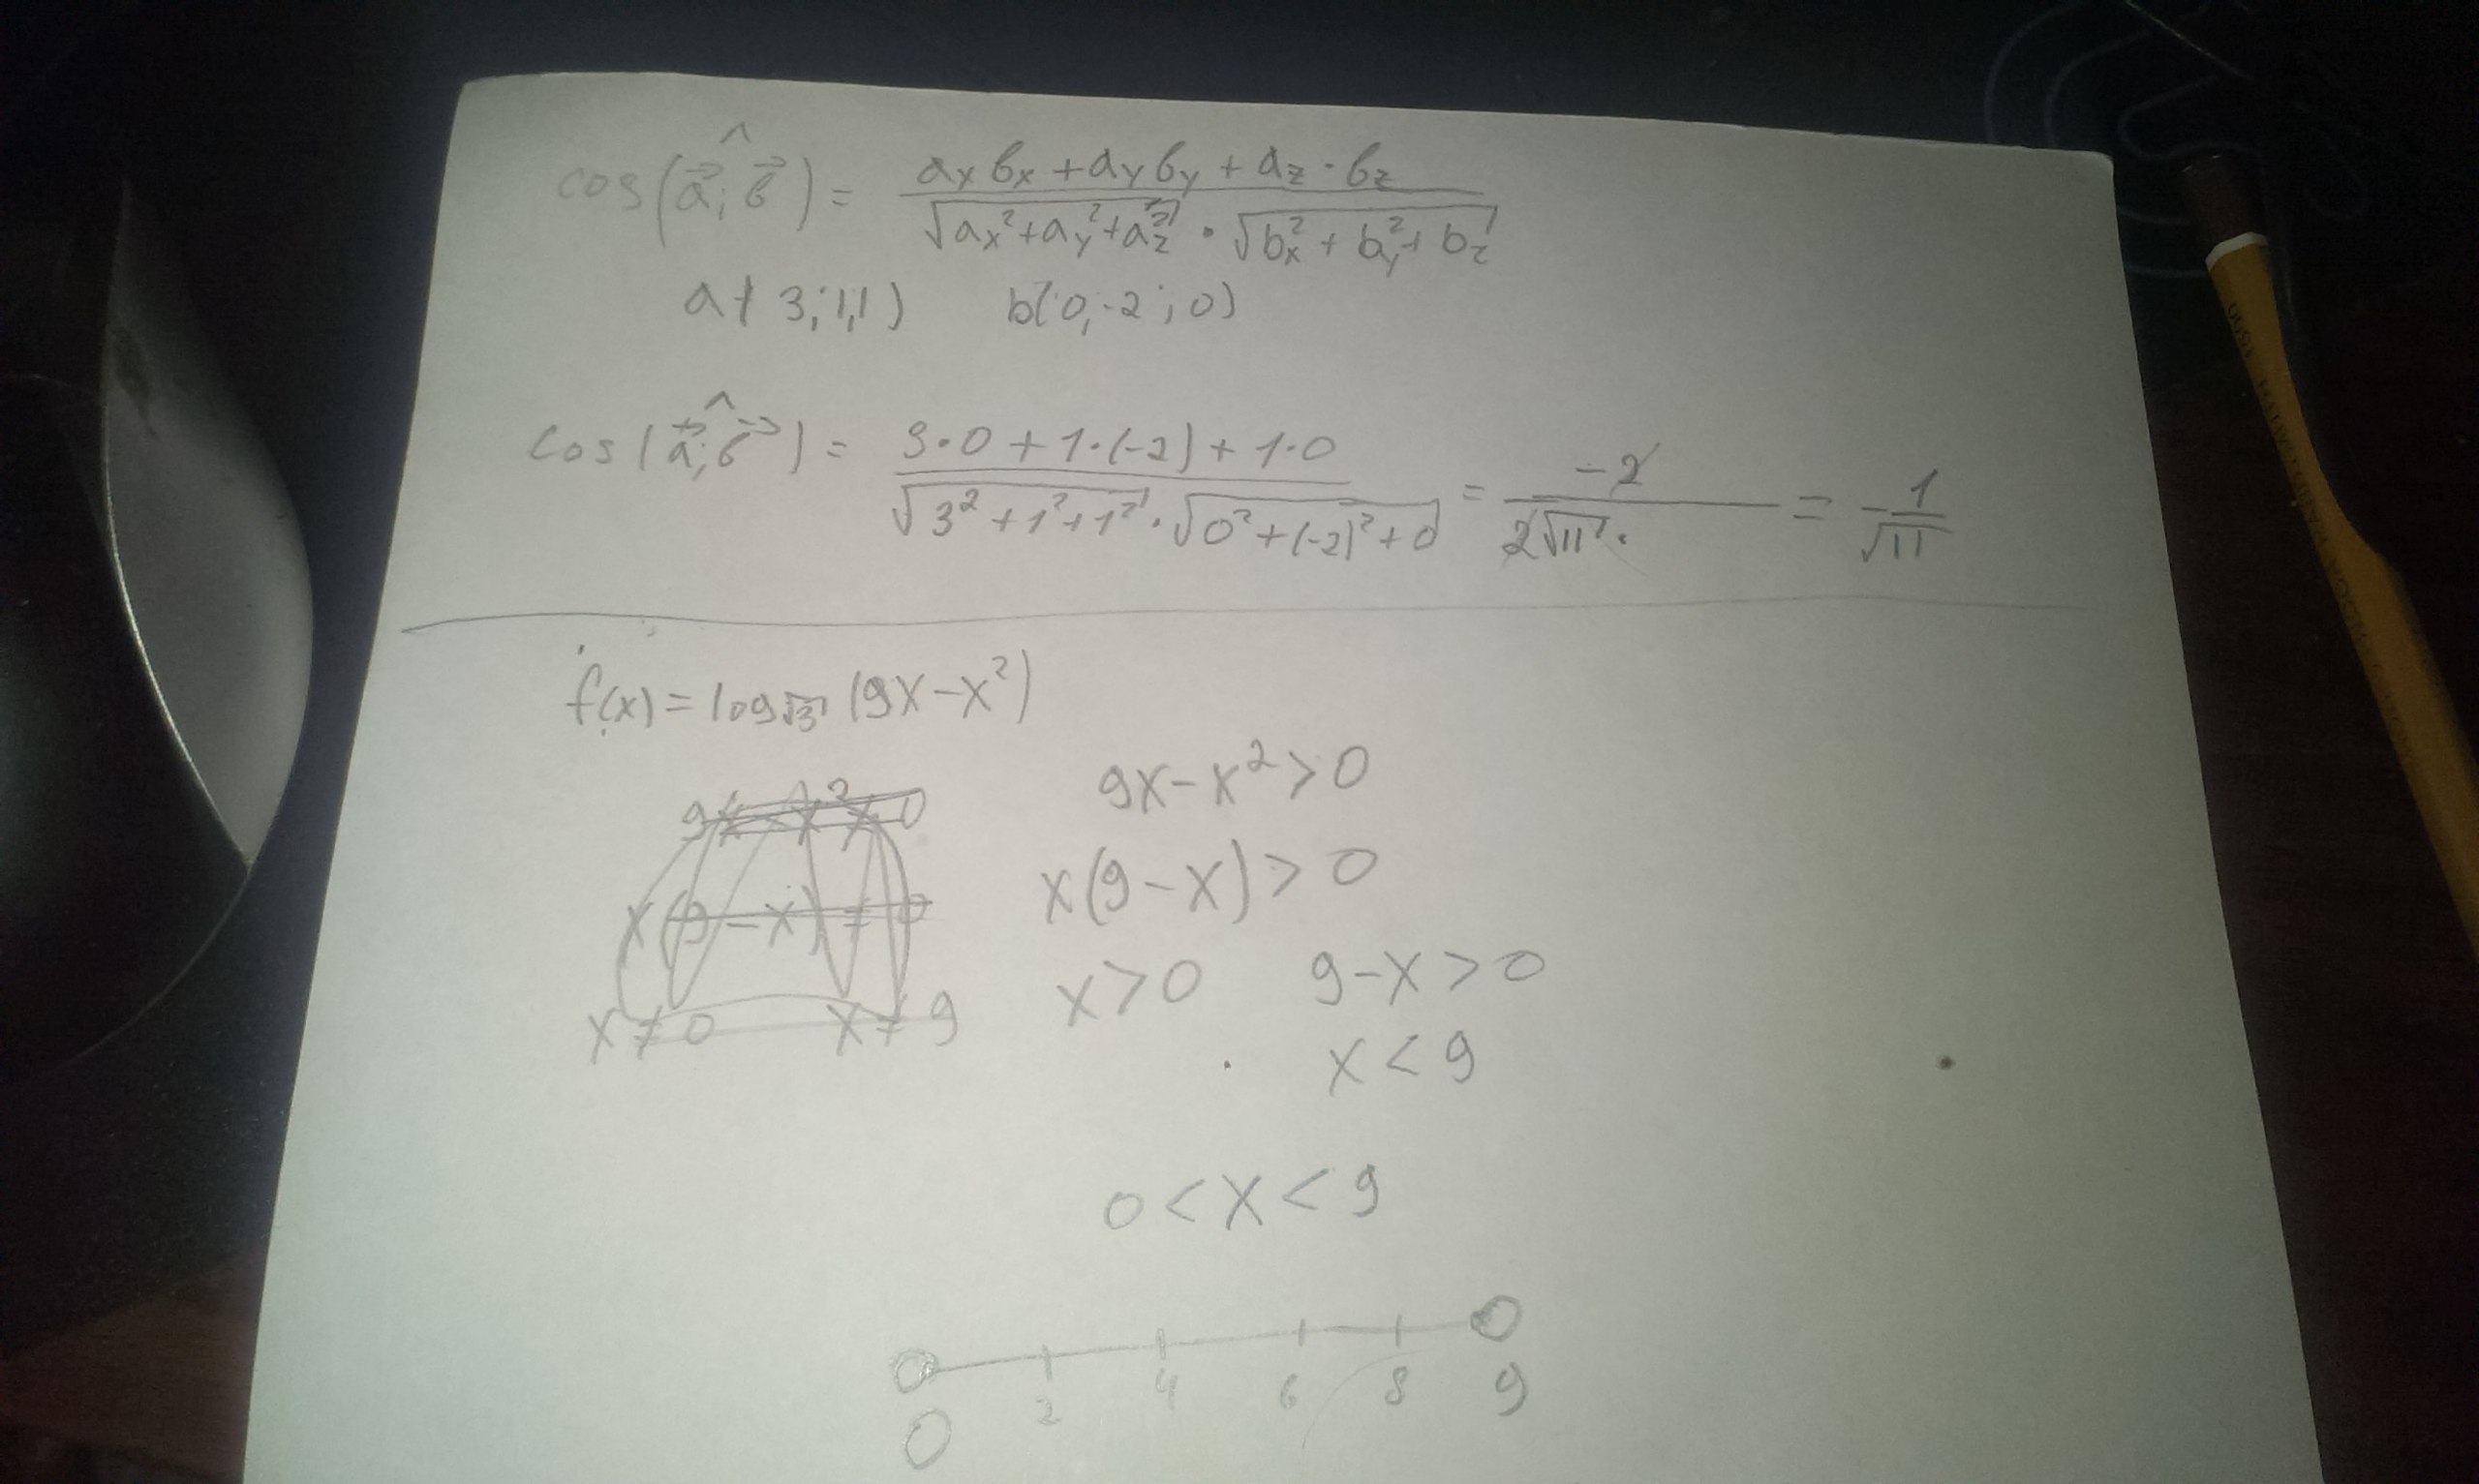 cos(a⃗; b⃗)^ = (aₓbₓ + aᵧbᵧ + a_z · b_z) / (√(aₓ² + aᵧ² + a_z²) · √(bₓ² + bᵧ² + b_z))
a( 3; 1, 1) b(0, -2; 0)
cos(a⃗; b⃗)^ = (3·0 + 1·(-2) + 1·0) / (√(3² + 1² + 1²) · √(0² + (-2)² + 0)) = -2 / (2√11 ·) = -1/√11
f(x) = log√3 (9x - x²)
9x - x² > 0
x(9 - x) = 0
x ≠ 0 x ≠ 9
9x - x² > 0
x(9 - x) > 0
x > 0 9 - x > 0
x < 9
0 < x < 9
0 2 4 6 8 9